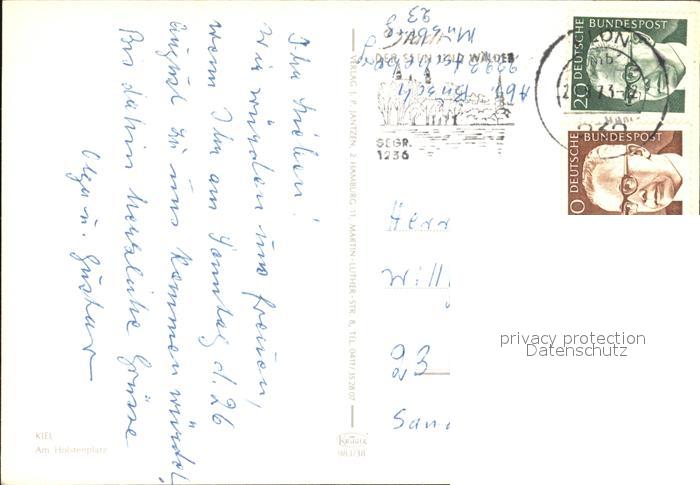 Ihr Lieben!
Wir würden uns freuen,
wenn Ihr am Sonntag d. 26
August zu uns kommen würdet,
Bis dahin herzliche Grüsse
Olga u. Gustav
KIEL
Am Holstenplatz
VERLAG I. P. JANTZEN, 2 HAMBURG 11, MARTIN-LUTHER-STR. 8, TEL. 0411/35 28 07
KRÜGER
983/38
Abs. Büsch
23
WÄLDER
SEGR.
1236
DEUTSCHE BUNDESPOST
20
DEUTSCHE BUNDESPOST
0
Herr
Will
23
San
privacy protection
Datenschutz